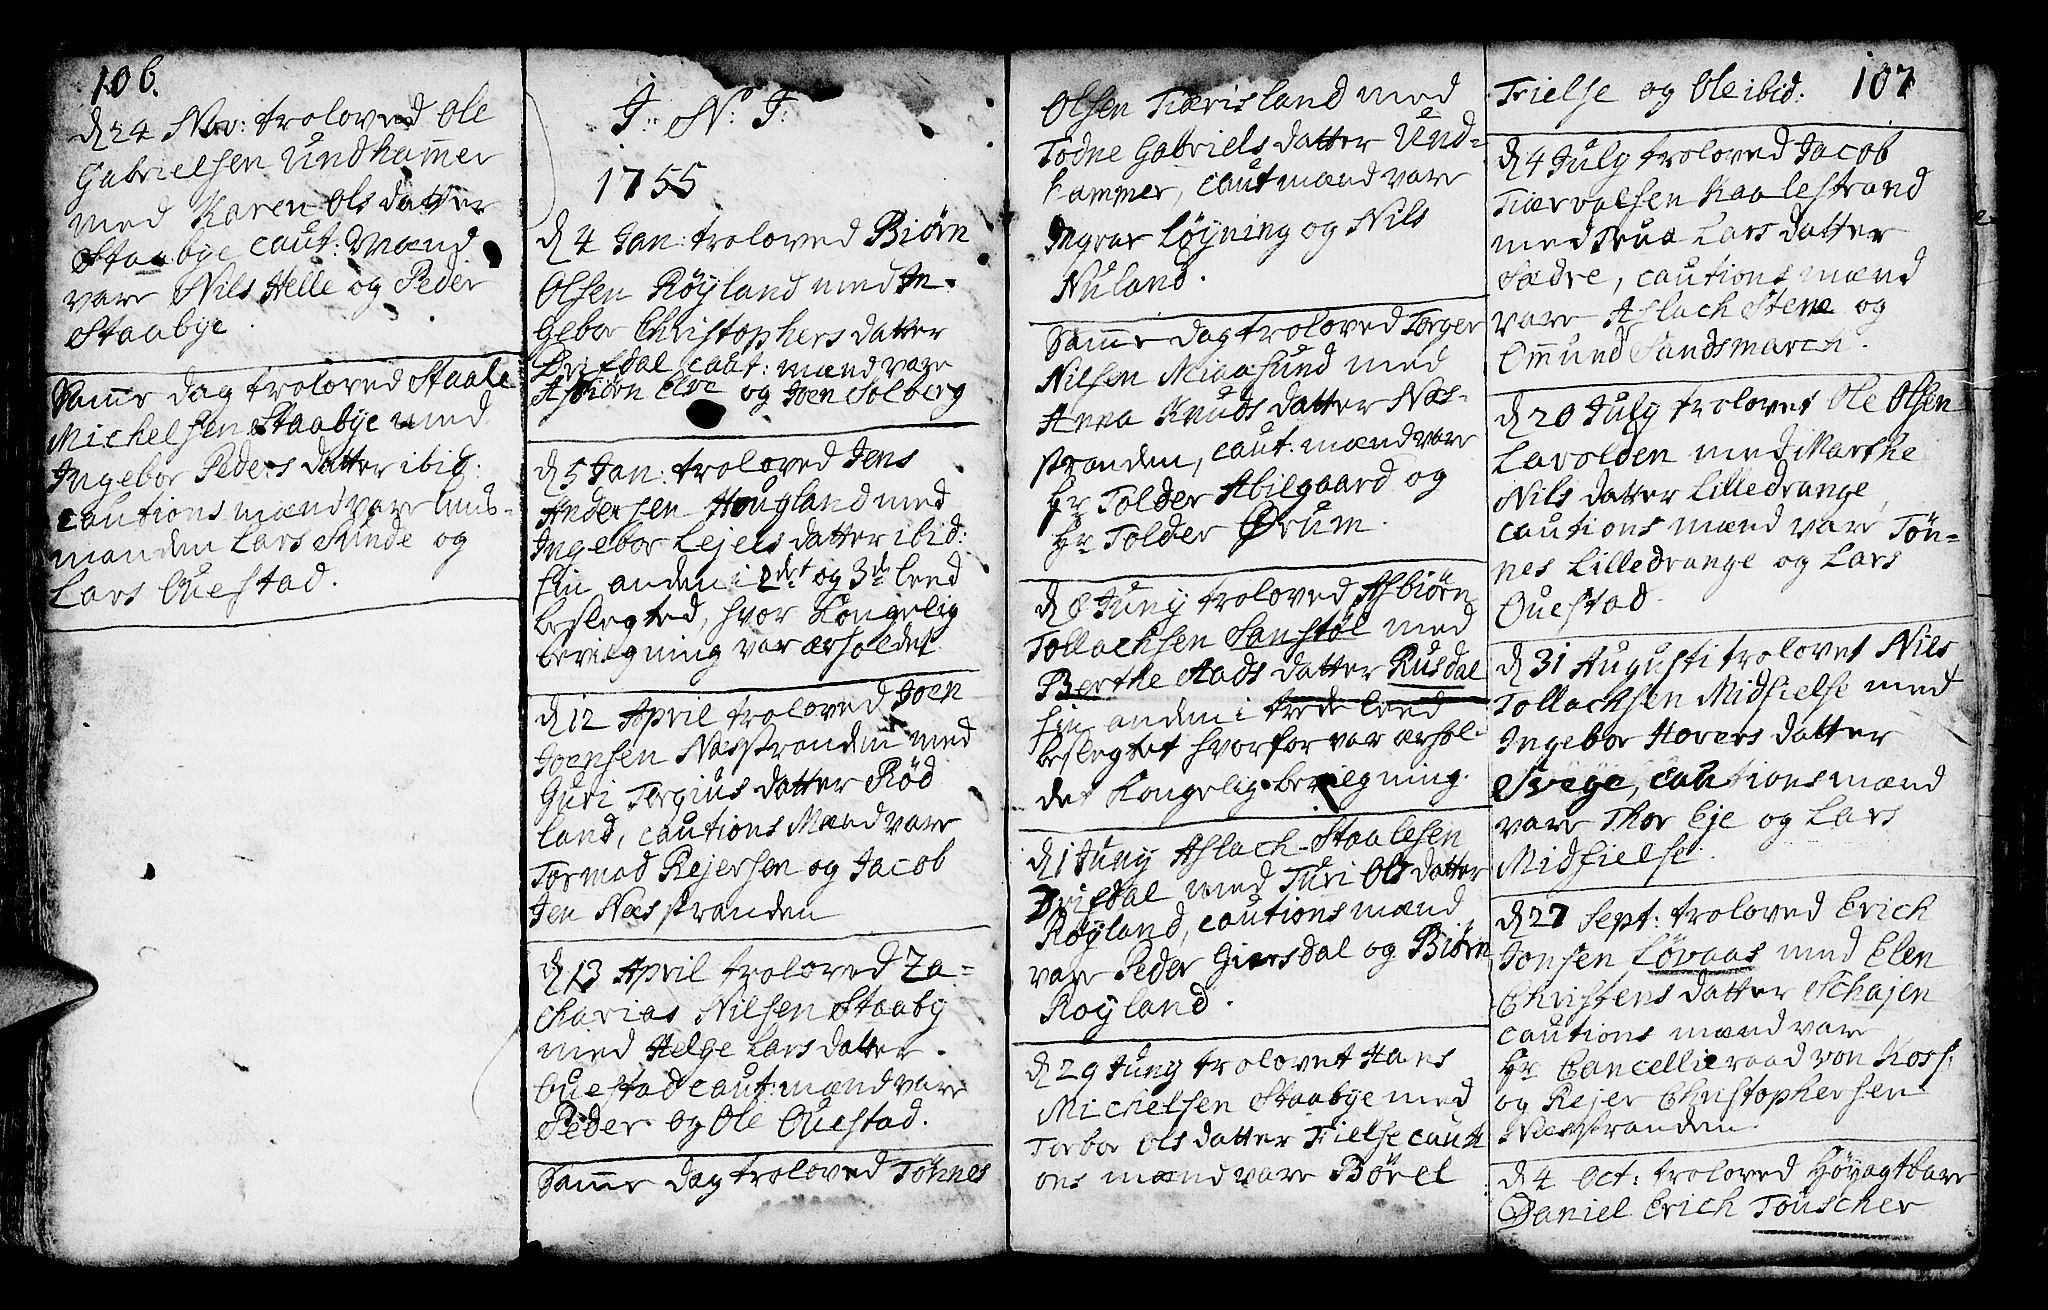 106.
d 24 Nov: troloved Ole
Gabrielsen Undhamer
med Karen Olsdatter
Staabye caut: Mænd
vare Nils Helle og Peder
Staabye.
Samme dag troloved Staale
Michelsen Staabye med
Ingebor Peders datter ibid:
Cautions mænd vare Lens-
manden Lars Sunde og
Lars Ouestad.
J: N: J:
1755
d 4 Jan: troloved Biørn
Olsen Røyland med In-
gebor Christophersdatter
Drifdal caut: mænd vare
Asbiørn Elve og Joen Solberg
d 5 Jan: troloved Jens
Andersen Hougland med
Ingebor Lejels datter ibid:
hin anden i 2det og 3de leed
beslegted, hvor Kongelig
bevilgning var ærholdet
d 12 April troloved Joen
Joensen Næsstranden med
Guri Torgius datter Rød
land, cautions Mænd vare
Tormod Rejersen og Jacob
Jen Næsstranden
d 13 April troloved Za-
charias Nilsen Staaby
med Helge Lars datter
Ouestad caut: mænd vare
Peder og Ole Ouestad.
Samme dag troloved Tønnes
Olsen Tiærisland med
Todne Gabriels datter Und-
hammer, caut mænd vare
Ingvar Løyning og Nils
Nuland.
Samme dag troloved Torger
Nilsen Miaasund med
Anna Knuds datter Næs-
stranden, caut: mænd vare
Hr Tolder Abilgaard og
Hr Tolder Ørum.
d 8 Juny troloved Asbiørn
Tollachsen Sanstøl med
Berthe Aads datter Rusdal
hin anden i trede leed
beslegtet hvorfor var ærhol-
det Kongelig bevilgning.
d 1 Juny Aslach Staalesen
Drifdal med Turi Ols datter
Røyland, cautions mænd
vare Peder Giersdal og Biørn
Røyland.
d 29 Juny trolovet Hans
Michelsen Staabye med
Torbor Ols datter Fielse cauti
ons mænd vare Börel
Fielse og Ole ibid: 107
d 4 July troloved Jacob
Tiærvalsen Kaalestrand
med Trua Lars datter
Sædre, cautions mænd
vare Aslach Stene og
Omund Sandsmarch.
d 20 July trolovet Ole Olsen
Lavolden med Marthe
Nils datter Lilledrange,
cautions mænd vare Tøn-
nes Lilledrange og Lars
Ouestad.
d 31 Augusti trolovet Nils
Tollachsen Midfielse med
Ingebor Hovers datter
Svege, cautions mænd
vare Thor Eje og Lars
Midfielse.
d 27 Sept: troloved Erich
Jonsen Løvaas med Elen
Christens datter Schajen
cautions mænd vare
Hr Cancellieraad von Koss:
og Rejer Christophersen
Næsstranden.
d 4 Oct: troloved Høyagtbare
Daniel Erich Touscher